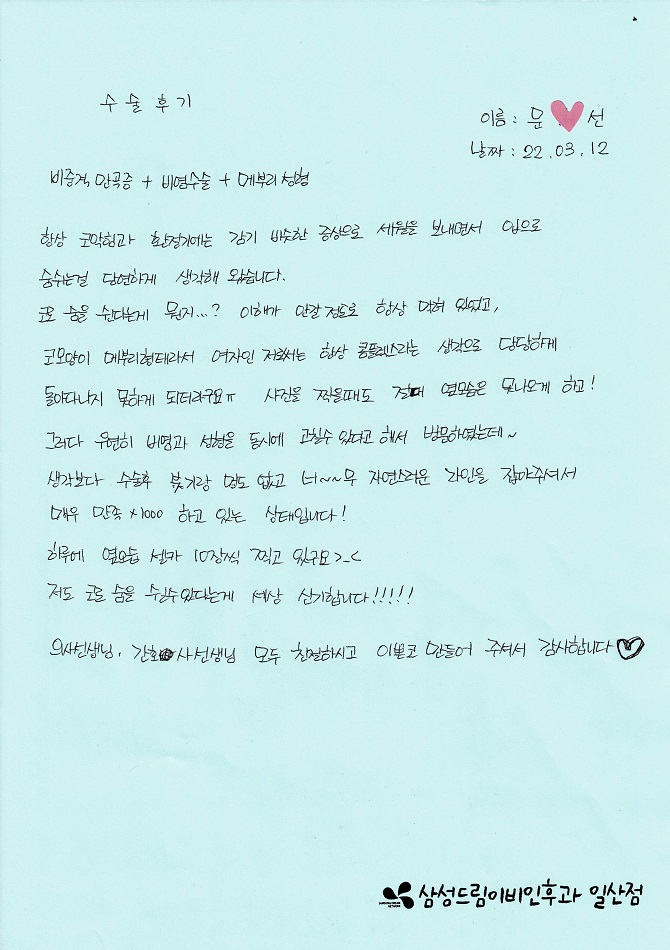 수술후기
이름 : 문 선
날짜 : 22.03.12
비중격 만곡증 + 비염수술 + 메부리 성형
항상 코막힘과 환절기에는 감기 비슷한 증상으로 세월을 보내면서 입으로
숨쉬는걸 당연하게 생각해 왔습니다.
코로 숨을 쉰다는게 뭔지...? 이해가 안갈 정도로 항상 막혀 있었고,
코모양이 메부리형태라서 여자인 저로써는 항상 콤플렌스라는 생각으로 당당하게
돌아다니지 못하게 되더라구요ㅠ 사진을 찍을때도 절대 옆모습은 못나오게 하고!
그러다 우연히 비염과 성형을 동시에 고칠수 있다고 해서 방문하였는데~
생각보다 수술후 붖기랑 멍도 없고 너~~무 자연스러운 라인을 잡아주셔서
매우 만족 x1000 하고 있는 상태입니다!
하루에 옆모습 셀카 10장씩 찍고 있구요>_<
저도 코로 숨을 쉴수있다는게 세상 신기합니다!!!!!
의사선생님, 간호사선생님 모두 친절하시고 이쁜코 만들어 주셔서 감사합니다♡
삼성드림이비인후과 일산점